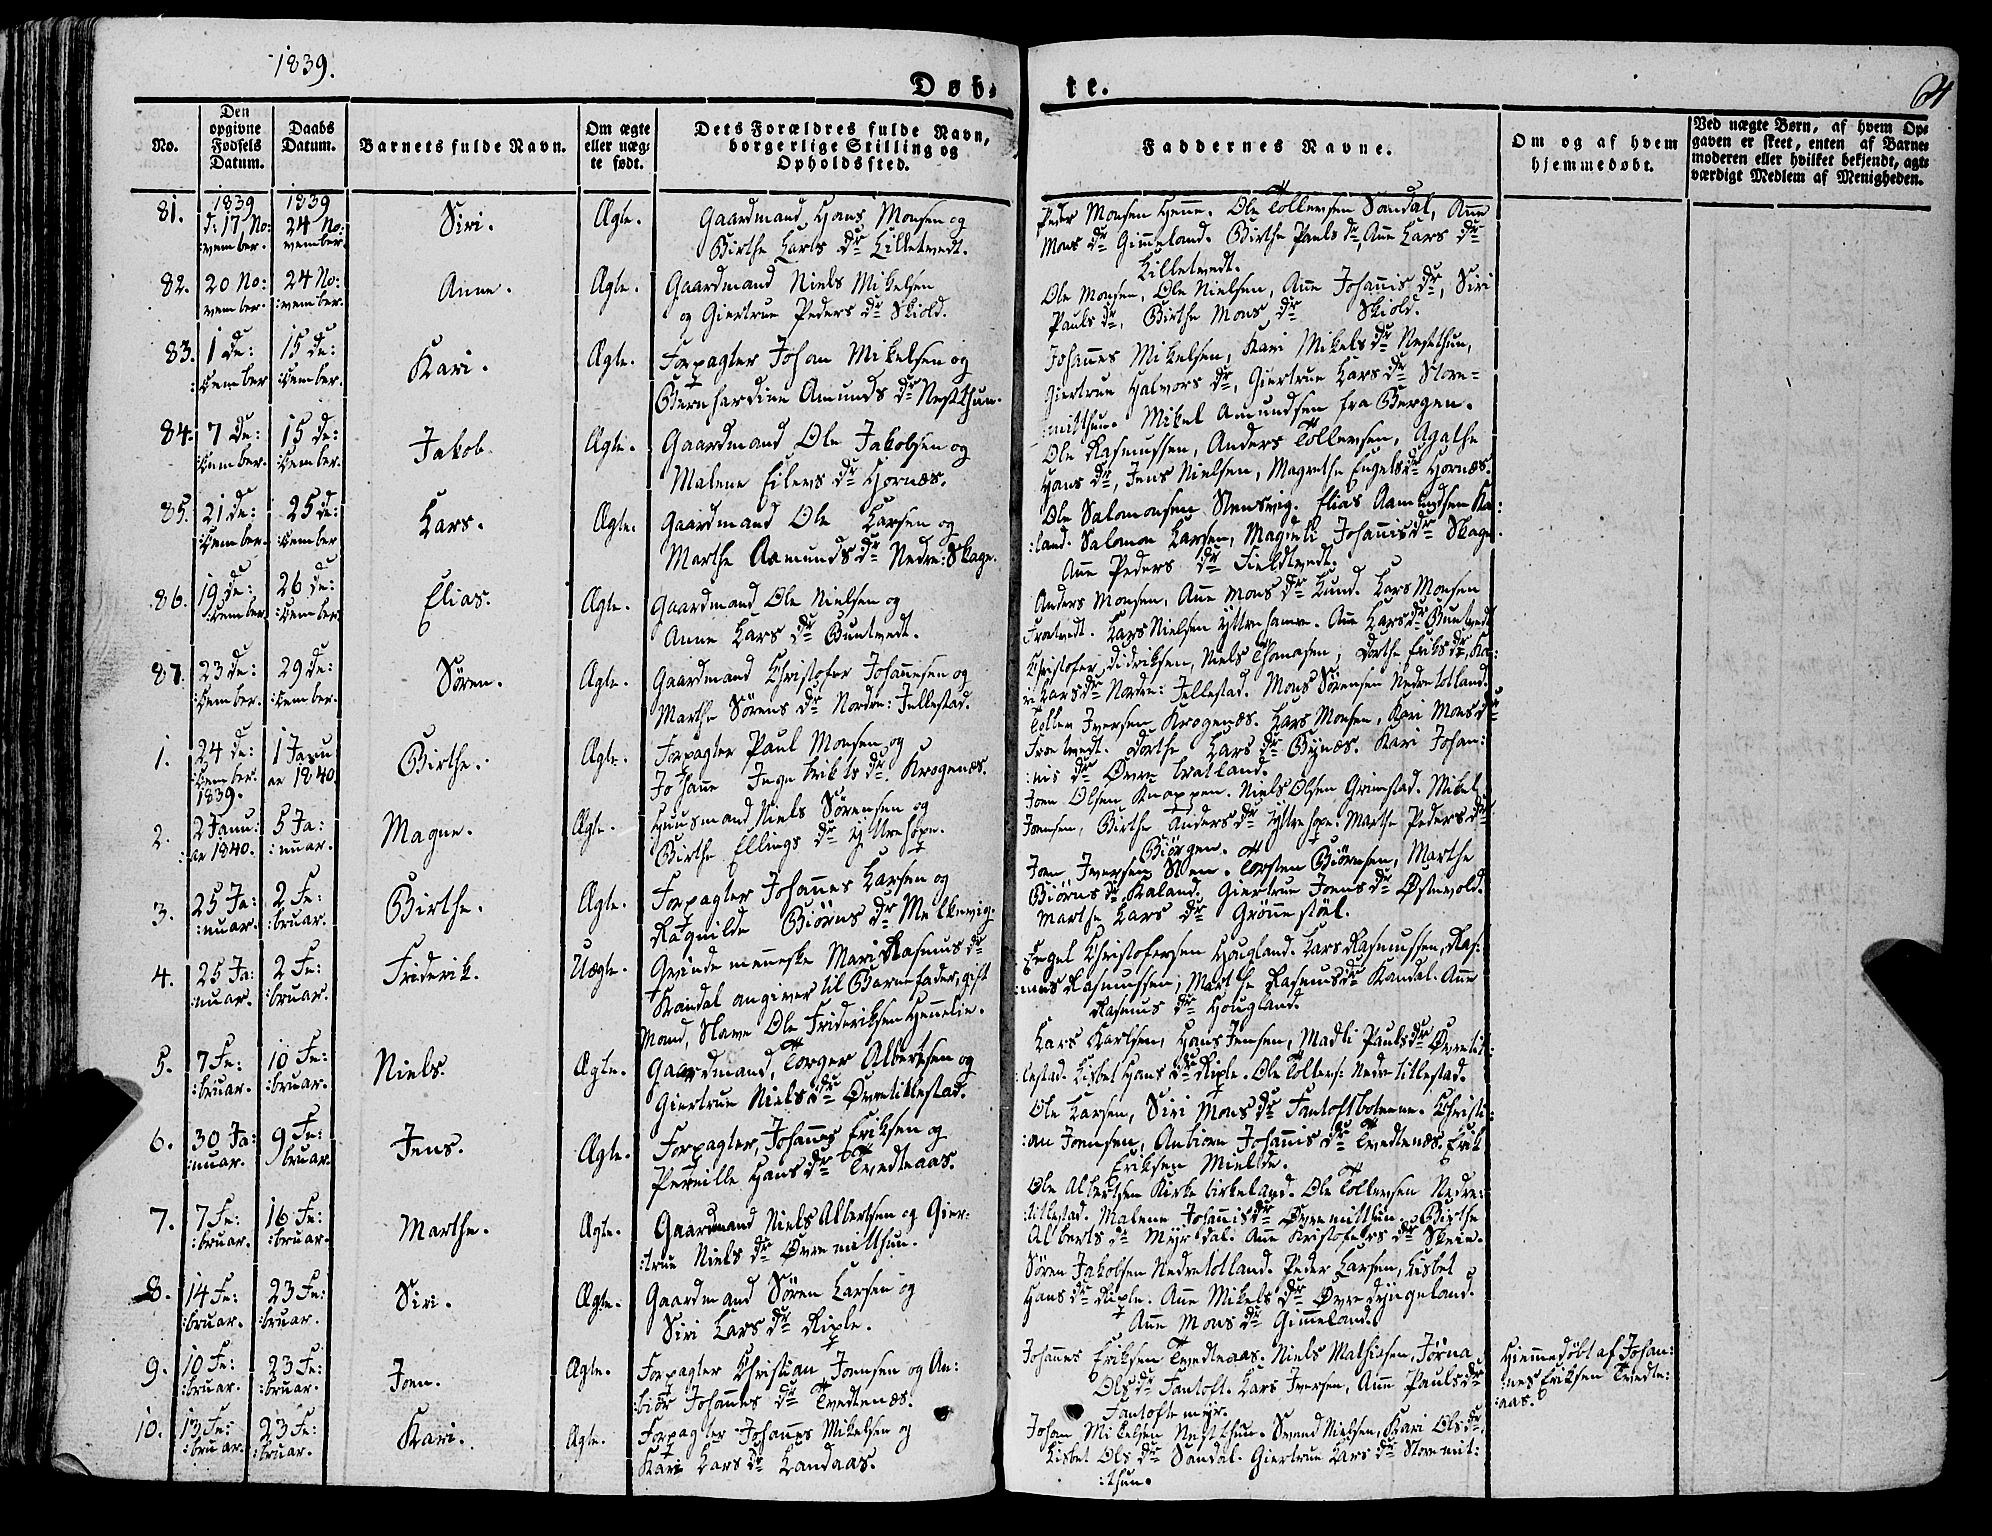 1839.
Døb-
te.
No.
Den
opgivne
Fødsels
Datum.
Daabs
Datum.
Barnets fulde Navn.
Om ægte
eller uæg-
te født.
Dets Forældres fulde Navn,
borgerlige Stilling og
Opholdssted.
Faddernes Navne.
Om og af hvem
hjemmedøbt.
Ved uægte Børn, af hvem Op-
gaven er skeet, enten af Barne-
moderen eller hvilket bekjendt, agt-
værdigt Medlem af Menigheden.
81.
1839
d: 17, No:
:vember.
1839
24 No:
vember.
Siri.
Ægte.
Gaardmand Hans Monsen og
Birthe Lars dr Lilletvedt.
Peder Monsen Henne. Ole Tollevsen Sandal, Anne
Mons dr Gimeland. Birthe Pauls dr, Ane Lars dr
Lilletvedt.
82.
20 No:
vember.
24 No:
:vember.
Anne.
Ægte.
Gaardmand Niels Mikelsen
og Giertrue Peders dr Skiold.
Ole Monsen, Ole Nielsen, Ane Johannis dr, Siri
Pauls dr, Birthe Mons dr Skiold.
83.
1 De:
:cember
15 De:
:cember.
Kari.
Ægte.
Forpagter Johan Mikelsen og
Bernhardine Amunds dr Nestthun.
Johannes Mikelsen, Kari Mikels dr Nestthun,
Giertrue Halvors dr, Giertrue Lars dr Store-
:mitthun. Mikel Amundsen fra Bergen.
84.
7 De:
:cember.
15 De:
:cember.
Jakob.
Ægte.
Gaardmand Ole Jakobsen og
Malene Eilers dr Hjornæs.
Ole Rasmussen, Anders Tollevsen, Agathe
Hans dr, Jens Nielsen, Magrethe Engels dr Hjornæs.
85.
21 De:
:cember.
25 De:
:cember
Lars.
Ægte.
Gaardmand Ole Larsen og
Marthe Aamunds dr Nedre: Skage.
Ole Salomonsen Stensvig. Elias Aamundsen Ka:
:land. Salomon Larsen, Magdeli Johannis dr Skage.
Ane Peders dr Fieldtvedt.
86.
19 De:
:cember
26 De:
:cember.
Elias.
Ægte.
Gaardmand Ole Nielsen og
Anne Lars dr Buntvedt.
Anders Monsen, Ane Mons dr Lund. Lars Monsen
Lars Nielsen Ane Lars dr Buntvedt
87.
23 De:
:cember.
29 De:
:cember.
Søren.
Ægte.
Gaardmand Christofer Johannesen og
Marthe Sørens dr Nordre: Jellestad.
Christofer Didriksen, Niels Thomasen, Dorthe Eriks dr, Ka:
ri Lars dr Nordre: Jellestad. Mons Sørensen Nedre Totland.
1.
24 De:
:cember.
1839.
1 Janu
ar 1840
Birthe.
Ægte.
Forpagter Paul Monsen og
Johane Ingebrikts dr. Krogenæs.
Tollev Iversen Krogenæs. Lars Monsen, Kari Mons dr
Dorthe Lars dr Bynæs. Kari Johan:
:nis dr Øvre
2.
2 Janu:
:ar 1840.
5 Ja:
:nuar.
Magne.
Ægte.
Huusmand Niels Sørensen og
Birthe Ellings dr Yttrehope.
Joen Olsen Knappen. Niels Olsen Grimstad. Mikel
Joensen, Birthe Anders dr Yttrehope. Marthe Peders dr
Biørgen.
3.
25 Ja:
:nuar.
2 Fe:
:bruar.
Birthe.
Ægte.
Forpagter Johannes Larsen og
Ragnilde Biørns dr Melkevig.
Joen Iversen Steen. Torsten Biørnsen, Marthe
Biørns dr Kaland. Giertrue Joens dr Østevold.
Marthe Lars dr Grønnestøel.
4.
25 Ja:
:nuar.
2 Fe:
:bruar.
Friderik.
Uægte.
Qvinde menneske Mari Rasmus dr
Kandal angiver til Barnefader, gift
Mand, Slave Ole Frideriksen
Engel Christofersen Hougland. Lars Rasmussen, Ras:
:mus Rasmussen, Marthe Rasmus dr Kandal. Ane
Rasmus dr Hougland.
5.
7 Fe:
:bruar.
10 Fe:
:bruar.
Niels.
Ægte.
Gaardmand, Torger Albertsen og
Giertrue Niels dr Øvretitlestad.
Lars Larsen, Hans Jensen, Madli Pauls dr Øvretit:
:lestad. Lisbet Hans dr Riple. Ole Tollevs: Nedre titlestad.
6.
30 Ja:
:nuar.
9 Fe:
bruar.
Jens.
Ægte.
Forpagter, Johannes Eriksen og
Pernille Hans dr Tvedteaas.
Ole Larsen, Siri Mons dr Fantoftbotnene. Christi:
:an Joensen, Anbiore Johannis dr Tvedtenæs. Erik
Eriksen Mielde.
7.
7 Fe:
:bruar.
16 Fe:
:bruar.
Marthe.
Ægte.
Gaardmand Niels Albertsen og Gier:
:true Niels dr Øvremitthun.
Ole Albertsen Kirke birkeland. Ole Tollevsen Nedre:
:titlestad. Malene Johannis dr Øvremitthun. Birthe
Alberts dr Myrdal. Ane Kristofers dr Skeie.
8.
14 Fe:
:bruar.
23 Fe:
:bruar.
Siri.
Ægte.
Gaardmand Søren Larsen og
Siri Lars dr Riple.
Søren Jakobsen Nedretotland. Peder Larsen, Lisbet
Hans dr Riple. Ane Mikels dr Øvredyngeland.
Ane Mons dr Gimeland.
9.
10 Fe:
:bruar.
23 Fe:
:bruar.
Joen.
Ægte.
Forpagter Christian Joensen og An:
:biør Johannes dr Tvedtenæs.
Johannes Eriksen Tvedteaas. Niels Mathisen, Jørna
Ols dr Fantoft. Lars Iversen, Ane Pauls dr
Fantoftemyr.
Hiemmedøbt af Johan:
:nes Eriksen Tvedte:
:aas.
10.
13 Fe:
:bruar.
23 Fe:
:bruar.
Kari.
Ægte.
Forpagter Johannes Mikelsen og
Kari Lars dr Landaas.
Johan Mikelsen Nestthun. Svend Nielsen, Kari Ols dr,
Lisbet Ols dr Sandal. Giertrue Lars dr Storemit:
:thun.